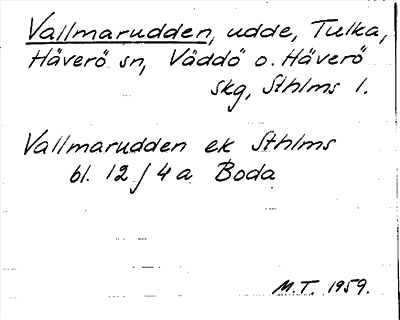 Vallmarudden, udde, Tulka,
Häverö sn, Väddö o. Häverö
skg, Sthlms l.
Vallmarudden ek Sthlms
bl. 12 j 4 a Boda
M.T. 1959.